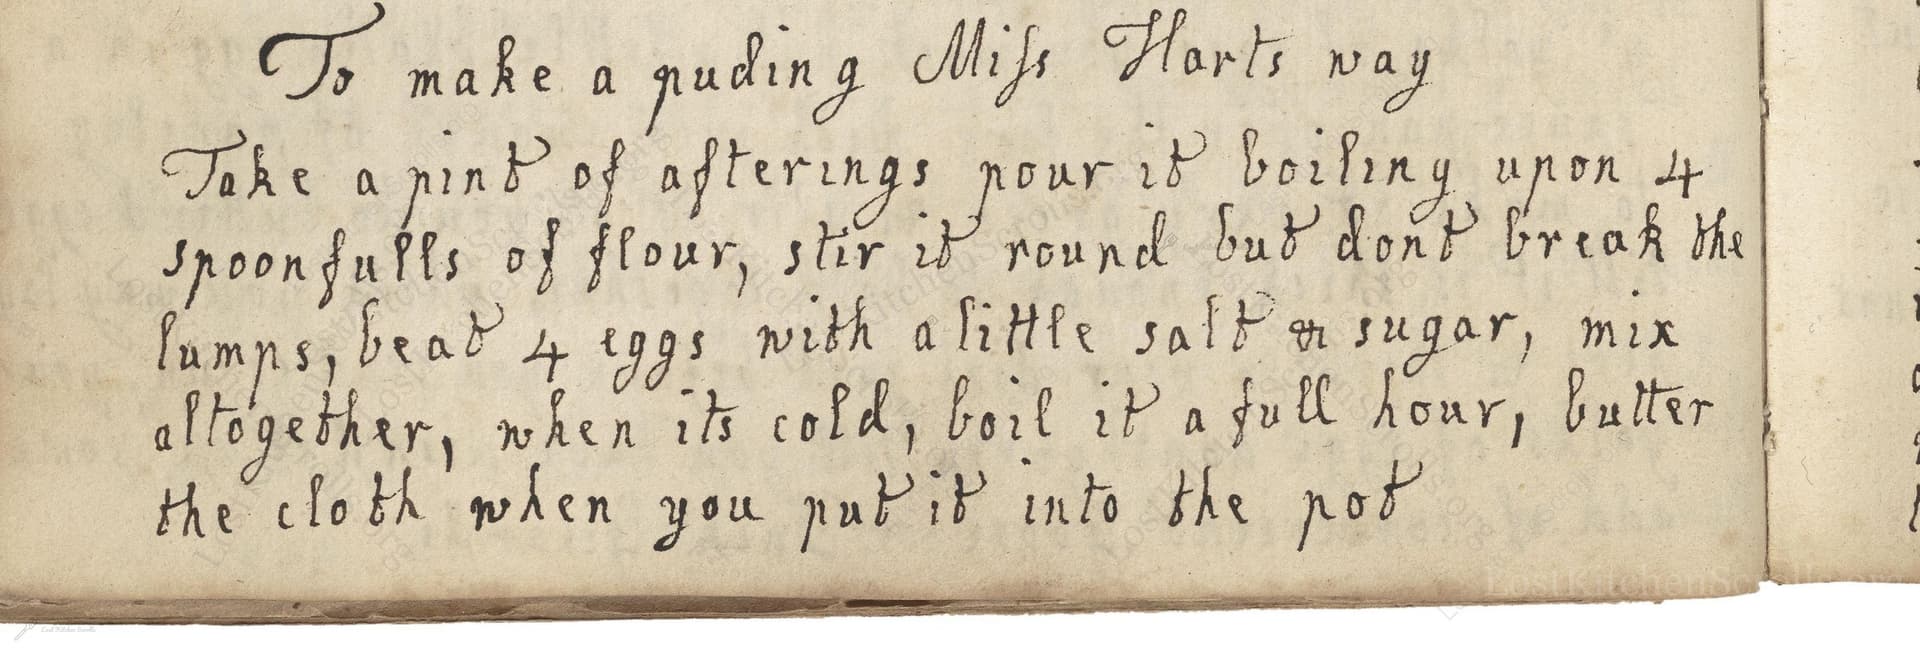 To make a puding Miſs Harts way
Take a pint of afterings pour it boiling upon 4
spoonfulls of flour, stir it round but dont break the
lumps, beat 4 eggs with a little salt & sugar, mix
altogether, when its cold, boil it a full hour, butter
the cloth when you put it into the pot